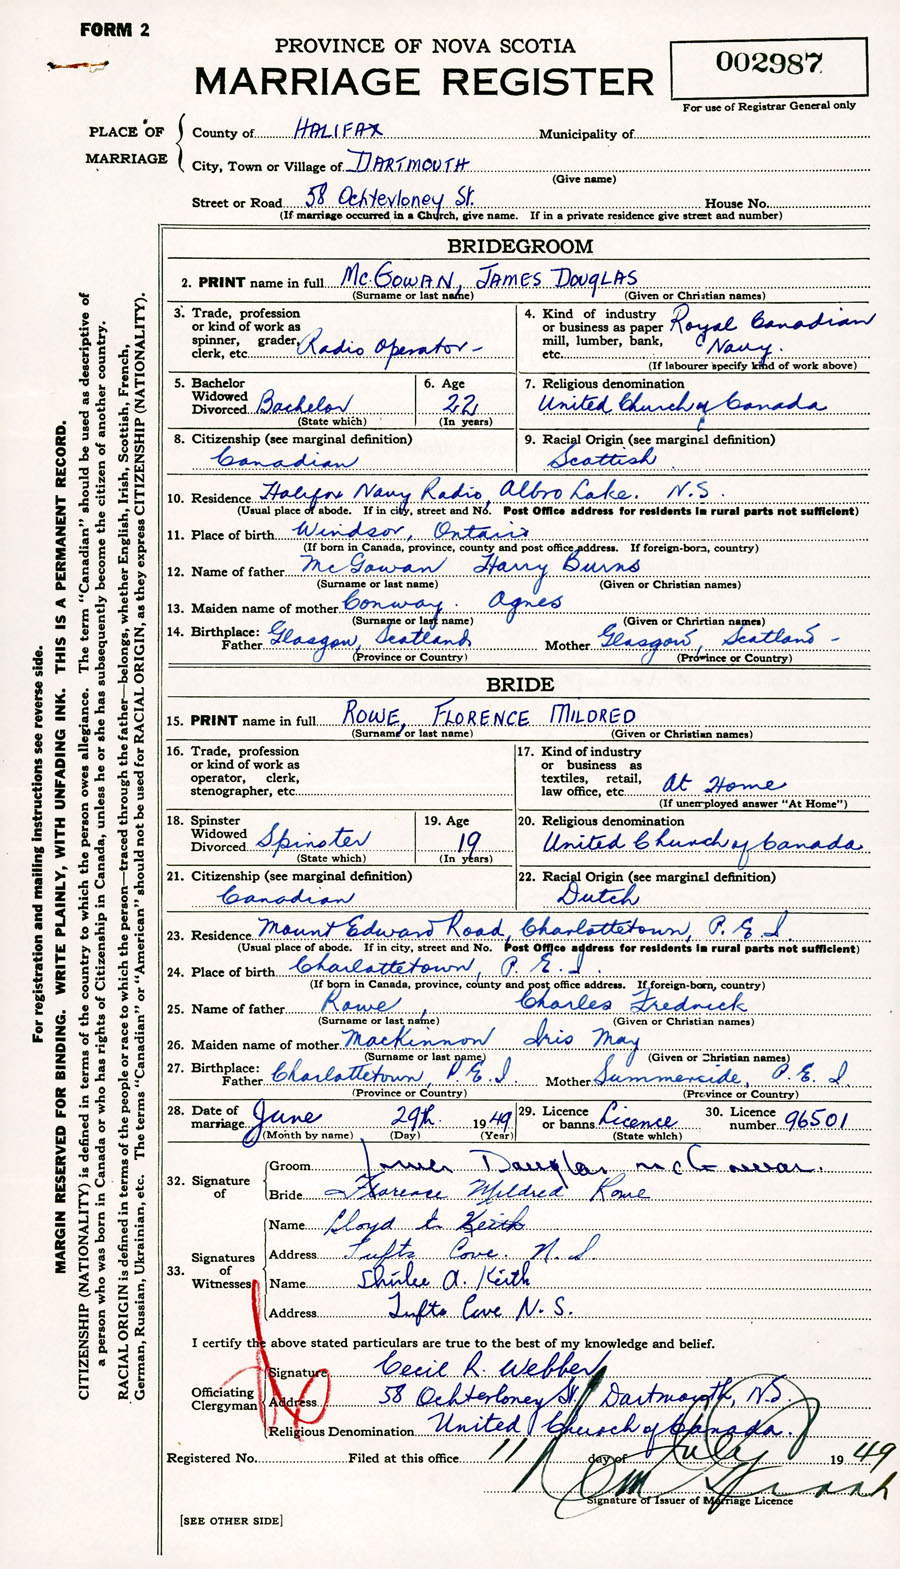 FORM 2
PROVINCE OF NOVA SCOTIA
MARRIAGE REGISTER
002987
For use of Registrar General only
PLACE OF MARRIAGE
County of HALIFAX Municipality of
City, Town or Village of DARTMOUTH
(Give name)
Street or Road 58 Ochterloney St. House No.
(If marriage occurred in a Church, give name. If in a private residence give street and number)
BRIDEGROOM
2. PRINT name in full McGOWAN, JAMES DOUGLAS
(Surname or last name) (Given or Christian names)
3. Trade, profession or kind of work as spinner, grader, clerk, etc. Radio Operator -
4. Kind of industry or business as paper mill, lumber, bank, etc. Royal Canadian Navy.
(If labourer specify kind of work above)
5. Bachelor Widowed Divorced Bachelor
(State which)
6. Age 22
(In years)
7. Religious denomination
United Church of Canada
8. Citizenship (see marginal definition)
Canadian
9. Racial Origin (see marginal definition)
Scottish
10. Residence Halifax Navy Radio, Albro Lake. N.S.
(Usual place of abode. If in city, street and No. Post Office address for residents in rural parts not sufficient)
11. Place of birth Windsor, Ontario
(If born in Canada, province, county and post office address. If foreign-born, country)
12. Name of father McGowan Harry Burns
(Surname or last name) (Given or Christian names)
13. Maiden name of mother Conway. Agnes
(Surname or last name) (Given or Christian names)
14. Birthplace: Father Glasgow, Scotland Mother Glasgow, Scotland -
(Province or Country) (Province or Country)
BRIDE
15. PRINT name in full ROWE, FLORENCE MILDRED
(Surname or last name) (Given or Christian names)
16. Trade, profession or kind of work as operator, clerk, stenographer, etc.
17. Kind of industry or business as textiles, retail, law office, etc. At Home
(If unemployed answer "At Home")
18. Spinster Widowed Divorced Spinster
(State which)
19. Age 19
(In years)
20. Religious denomination
United Church of Canada
21. Citizenship (see marginal definition)
Canadian
22. Racial Origin (see marginal definition)
Dutch
23. Residence Mount Edward Road, Charlottetown, P.E.I.
(Usual place of abode. If in city, street and No. Post Office address for residents in rural parts not sufficient)
24. Place of birth Charlottetown, P.E.I.
(If born in Canada, province, county and post office address. If foreign-born, country)
25. Name of father Rowe, Charles Fredrick
(Surname or last name) (Given or Christian names)
26. Maiden name of mother MacKinnon Iris May
(Surname or last name) (Given or Christian names)
27. Birthplace: Father Charlottetown, P.E.I. Mother Summerside, P.E.I.
(Province or Country) (Province or Country)
28. Date of marriage June 29th. 1949
(Month by name) (Day) (Year)
29. Licence or banns Licence
(State which)
30. Licence number 96501
32. Signature of
Groom James Douglas McGowan.
Bride Florence Mildred Rowe
33. Signatures of Witnesses
Name Lloyd E Keith
Address Tufts Cove. N.S
Name Shirlee A. Keith
Address Tufts Cove N.S.
I certify the above stated particulars are true to the best of my knowledge and belief.
Officiating Clergyman
Signature Cecil R. Webber
Address 58 Ochterloney St. Dartmouth, N.S.
Religious Denomination United Church of Canada.
Registered No. Filed at this office 11 day of July 1949
Signature of Issuer of Marriage Licence
[SEE OTHER SIDE]
For registration and mailing instructions see reverse side.
MARGIN RESERVED FOR BINDING. WRITE PLAINLY, WITH UNFADING INK. THIS IS A PERMANENT RECORD.
CITIZENSHIP (NATIONALITY) is defined in terms of the country to which the person owes allegiance. The term "Canadian" should be used as descriptive of
a person who was born in Canada or who has rights of Citizenship in Canada, unless he or she has subsequently become the citizen of another country.
RACIAL ORIGIN is defined in terms of the people or race to which the person—traced through the father—belongs, whether English, Irish, Scottish, French,
German, Russian, Ukrainian, etc. The terms "Canadian" or "American" should not be used for RACIAL ORIGIN, as they express CITIZENSHIP (NATIONALITY).